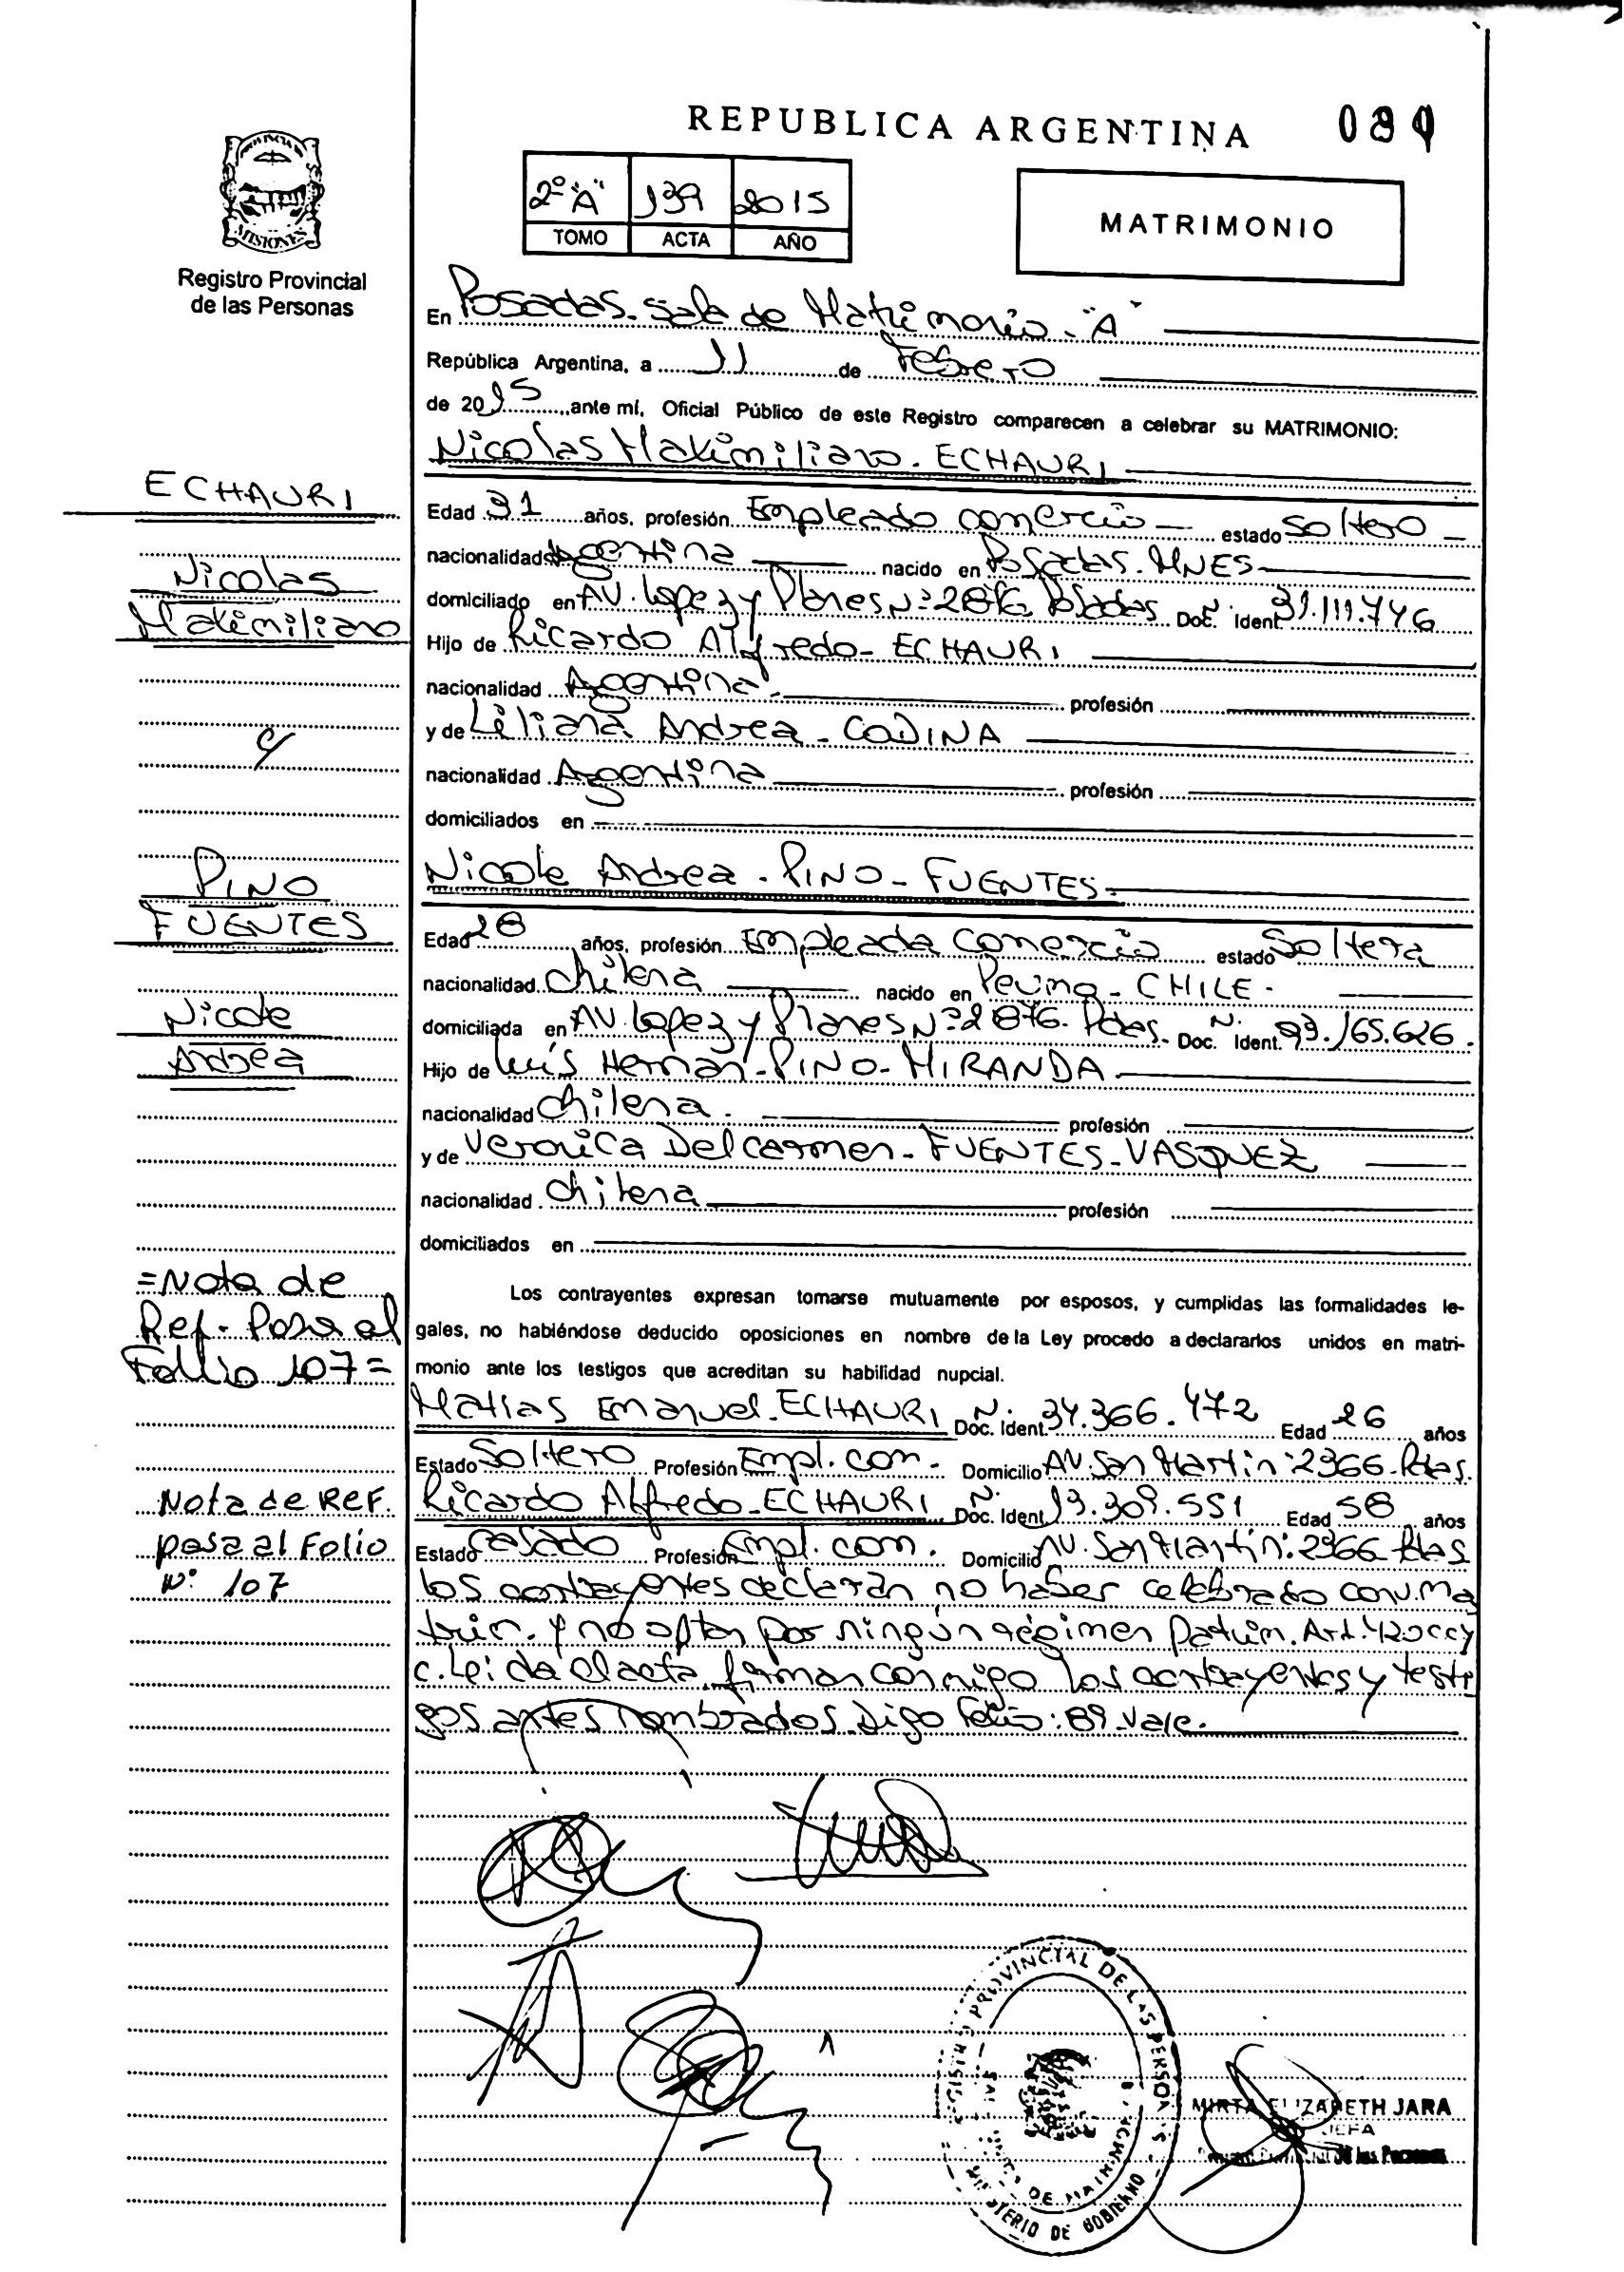 REPUBLICA ARGENTINA 089
MISIONES
Registro Provincial
de las Personas
2º "A" 139 2015
TOMO ACTA AÑO
MATRIMONIO
En Posadas. Sala de Matrimonio - "A"
República Argentina, a 11 de Febrero
de 2015 ante mí, Oficial Público de este Registro comparecen a celebrar su MATRIMONIO:
Nicolas Maximiliano. ECHAURI
Edad 31 años, profesión Empleado comercio estado Soltero
nacionalidad Argentina nacido en Posadas. MNES
domiciliado en AV. Lopez y Planes Nº 2876 Posadas Doc. Ident Nº 31.111.746
Hijo de Ricardo Alfredo - ECHAURI
nacionalidad Argentina profesión
y de Liliana Andrea - CODINA
nacionalidad Argentina profesión
domiciliados en
Nicole Andrea - PINO - FUENTES
Edad 28 años, profesión Empleada Comercio estado Soltera
nacionalidad chilena nacido en Peumo - CHILE -
domiciliada en AV. Lopez y Planes Nº 2876. Pdas. Doc. Ident. Nº 93.165.626.
Hijo de Luis Hernan - PINO - MIRANDA
nacionalidad chilena. profesión
y de Veronica Del carmen - FUENTES - VASQUEZ
nacionalidad chilena profesión
domiciliados en
Los contrayentes expresan tomarse mutuamente por esposos, y cumplidas las formalidades le-
gales, no habiéndose deducido oposiciones en nombre de la Ley procedo a declararlos unidos en matri-
monio ante los testigos que acreditan su habilidad nupcial.
Matias Emanuel - ECHAURI Doc. Ident. Nº 34.366.472 Edad 26 años
Estado Soltero Profesión Empl. com. Domicilio AV. San Martin: 2366 - Pdas.
Ricardo Alfredo - ECHAURI Doc. Ident Nº 13.309.551 Edad 58 años
Estado Casado Profesión Empl. com. Domicilio AV. San Martin: 2366 Pdas
los contrayentes declaran no haber celebrado conv. ma
trim. y no optan por ningún régimen Patrim. Art. 420 cc y
c. Leida el acta, firman conmigo los contrayentes y testi
gos antes nombrados. Digo Folio: 89. Vale.
ECHAURI
Nicolas
Maximiliano
c/
PINO
FUENTES
Nicole
Andrea
=Nota de
Ref. - Pasa al
Follio 107=
Nota de REF.
pasa al Folio
Nº 107
REGISTRO PROVINCIAL DE LAS PERSONAS
MINISTERIO DE GOBIERNO
MIRTA ELIZABETH JARA
JEFA
de las Personas